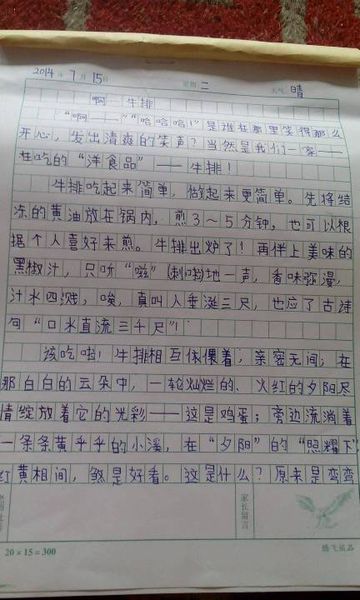 2014年7月15日 星期二 天气晴
啊——牛排
“啊——”“哈哈哈!”是谁在那里笑得那么
开心,发出清爽的笑声?当然是我们一家
在吃的“洋食品”——牛排!
牛排吃起来简单,做起来更简单。先将结
冻的黄油放在锅内,煎3~5分钟,也可以根
据个人喜好来煎。牛排出炉了!再伴上美味的
黑椒汁,只听“嗞”(刺啦)地一声,香味弥漫,
汁水四溅,唉,真叫人垂涎三尺,也应了古诗
句“口水直流三千尺”!
该吃啦!牛排相互依偎着,亲密无间;在
那白白的云朵中,一轮灿烂的、火红的夕阳尽
情绽放着它的光彩——这是鸡蛋;旁边流淌着
一条条黄乎乎的小溪,在“夕阳”的“照耀下
红黄相间,煞是好看。这是什么?原来是弯弯
家长留言
20×15=300